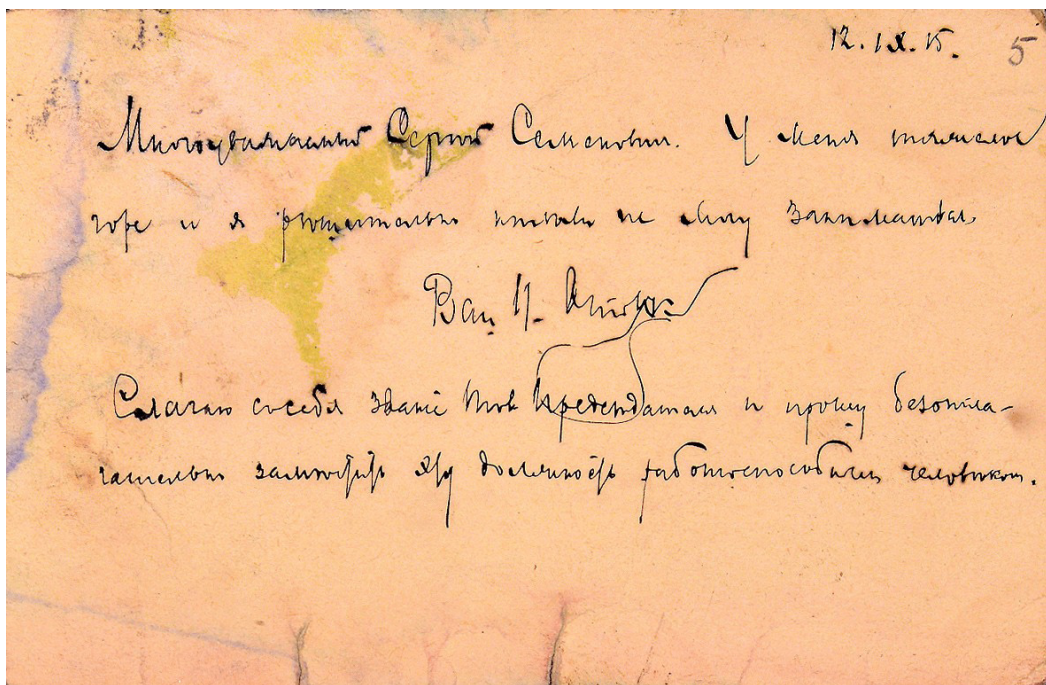 12.IX.15. 5
Многоуважаемый Сергей Семенович. У меня тяжелое
горе и я решительно ничем не могу заниматься.
Ваш
Слагаю с себя званіе Тов Председателя и прошу безотла-
гательно заместить эту должность работоспособным человеком.